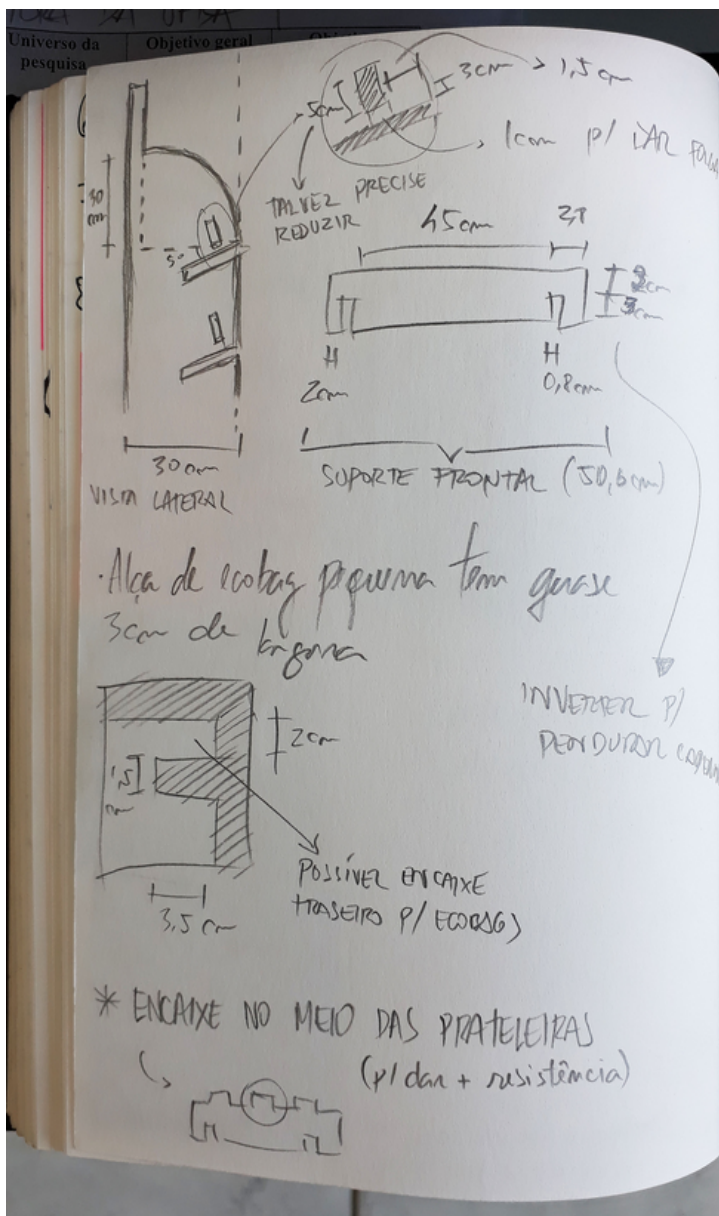 Universo da
pesquisa
Objetivo geral
5cm
3cm
1,5cm
1cm p/ DAR
TALVEZ PRECISE
REDUZIR
30
cm
45cm
2cm
0,8cm
30cm
VISTA LATERAL
SUPORTE FRONTAL (50,6cm)
· Alça de ecobag pequena tem quase
3cm de largura
INVERTER P/
PENDURAR
2cm
3,5 cm
POSSÍVEL ENCAIXE
TRASEIRO P/ ECOBAG
* ENCAIXE NO MEIO DAS PRATELEIRAS
(p/ dar + resistência)